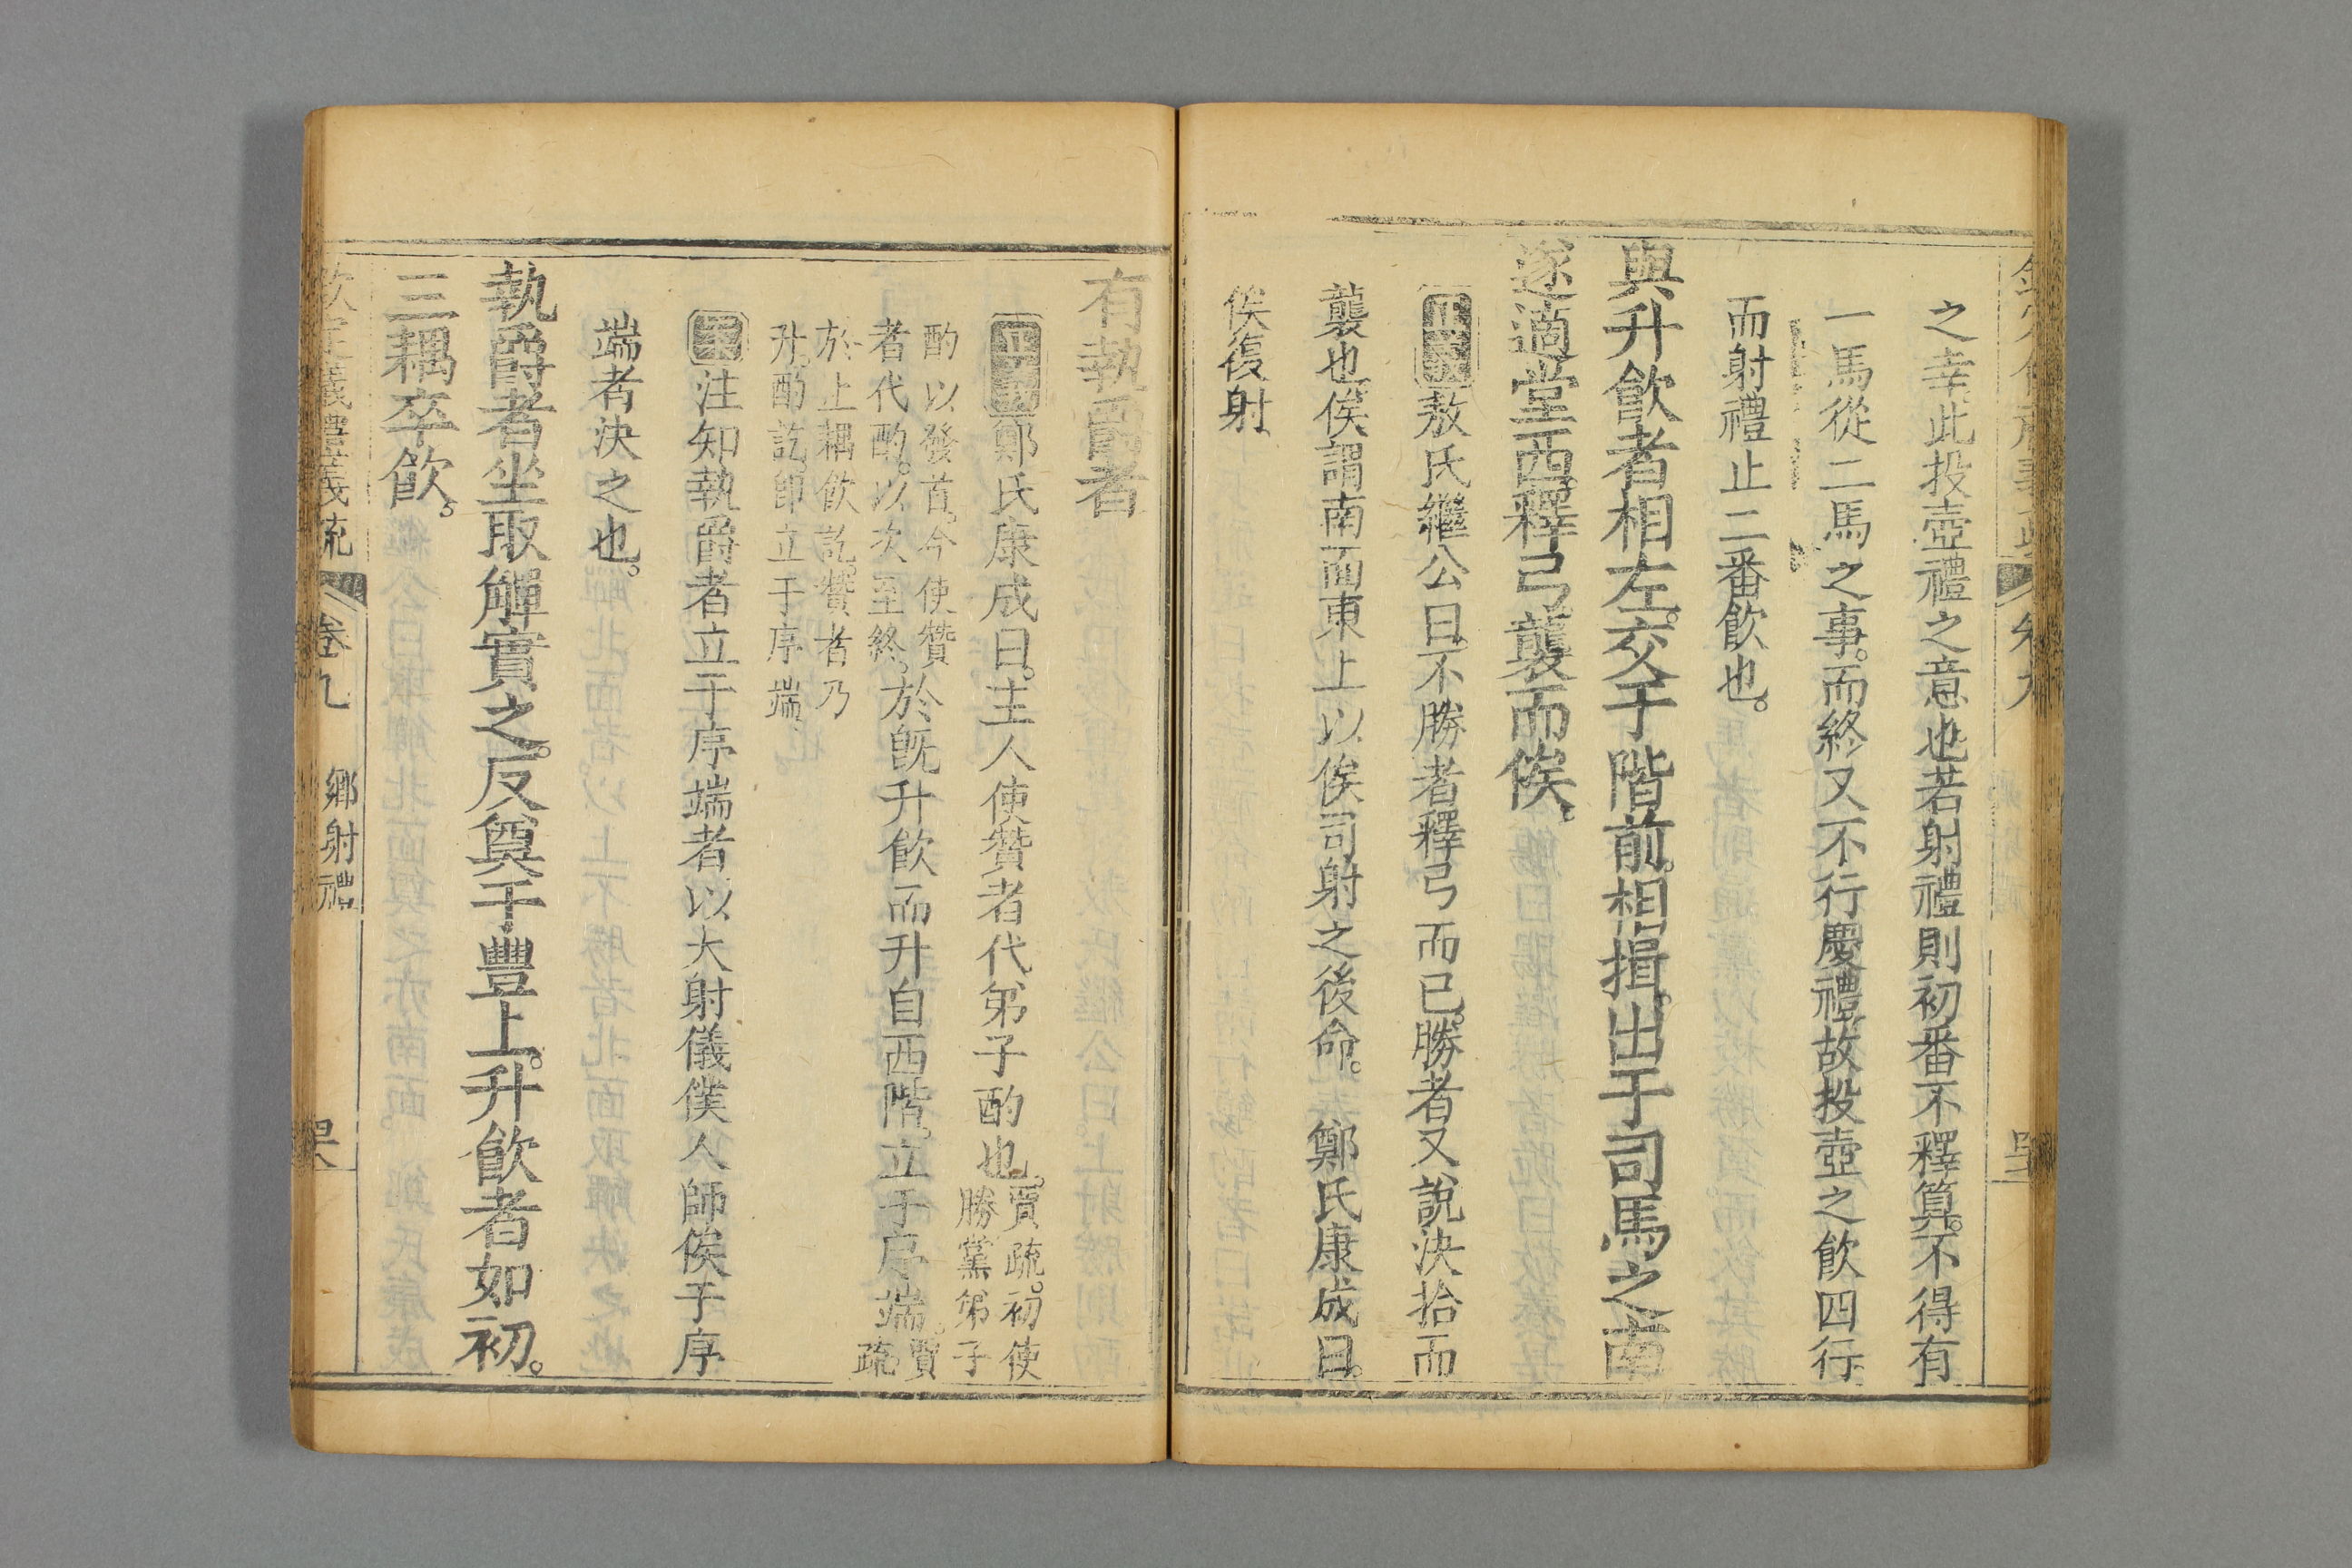 之幸。此投壺禮之意也。若射禮則初番不釋算。不得有
一馬從二馬之事。而終又不行慶禮。故投壺之飲四行。
而射禮止二番飲也。
與升飲者相左。交于階前。相揖。出于司馬之南
遂適堂西。釋弓。襲而俟。
正義敖氏繼公曰。不勝者釋弓而已。勝者又說決拾而
襲也。俟謂南面東上以俟司射之後命。 鄭氏康成曰。
俟復射。
有執爵者
正義鄭氏康成曰。主人使贊者代弟子酌也。賈疏。初使
勝黨弟子
酌以發首。今使贊
者代酌。以次至終。於既升飲而升自西階。立于序端。賈
疏。
於止耦飲訖。贊者乃
升。酌訖。即立于序端。
案注知執爵者立于序端者以大射儀僕人師俟于序
端者決之也。
執爵者坐取觶實之。反奠于豐上。升飲者如初。
三耦卒飲。
欽定儀禮義疏 卷九 鄉射禮